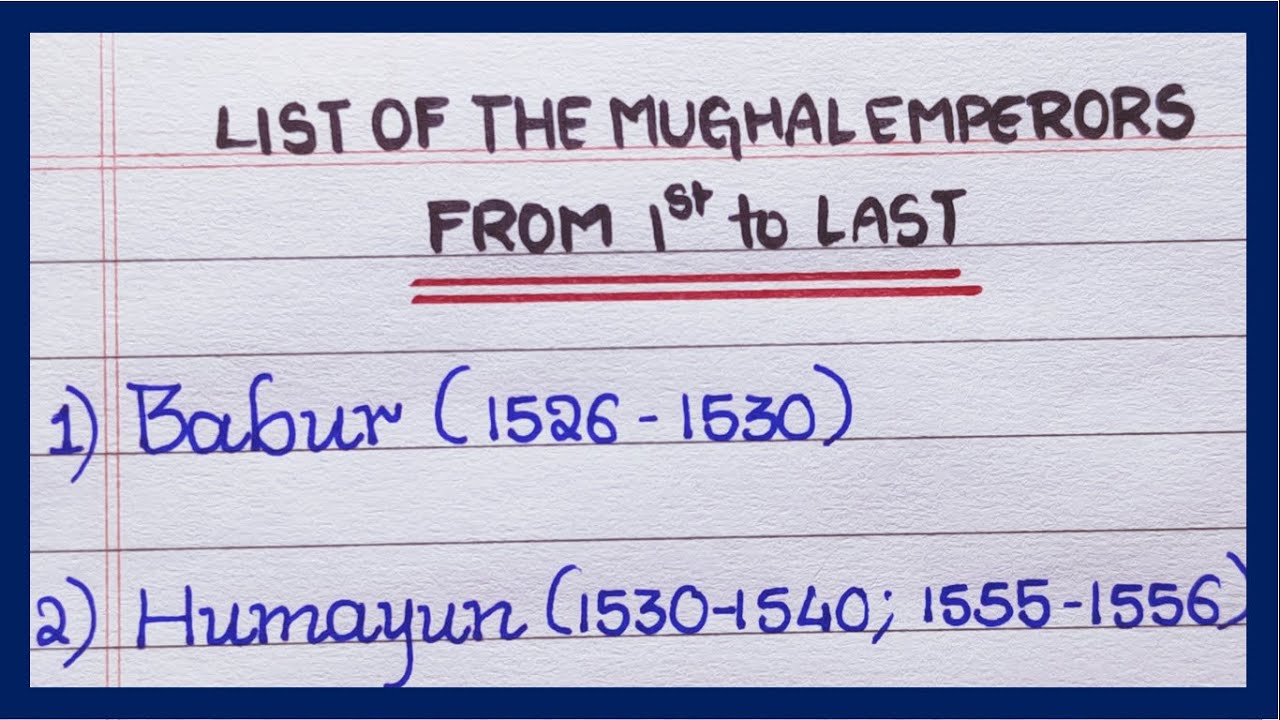 LIST OF THE MUGHAL EMPERORS
FROM 1st to LAST
1) Babur (1526 - 1530)
2) Humayun (1530-1540; 1555-1556)